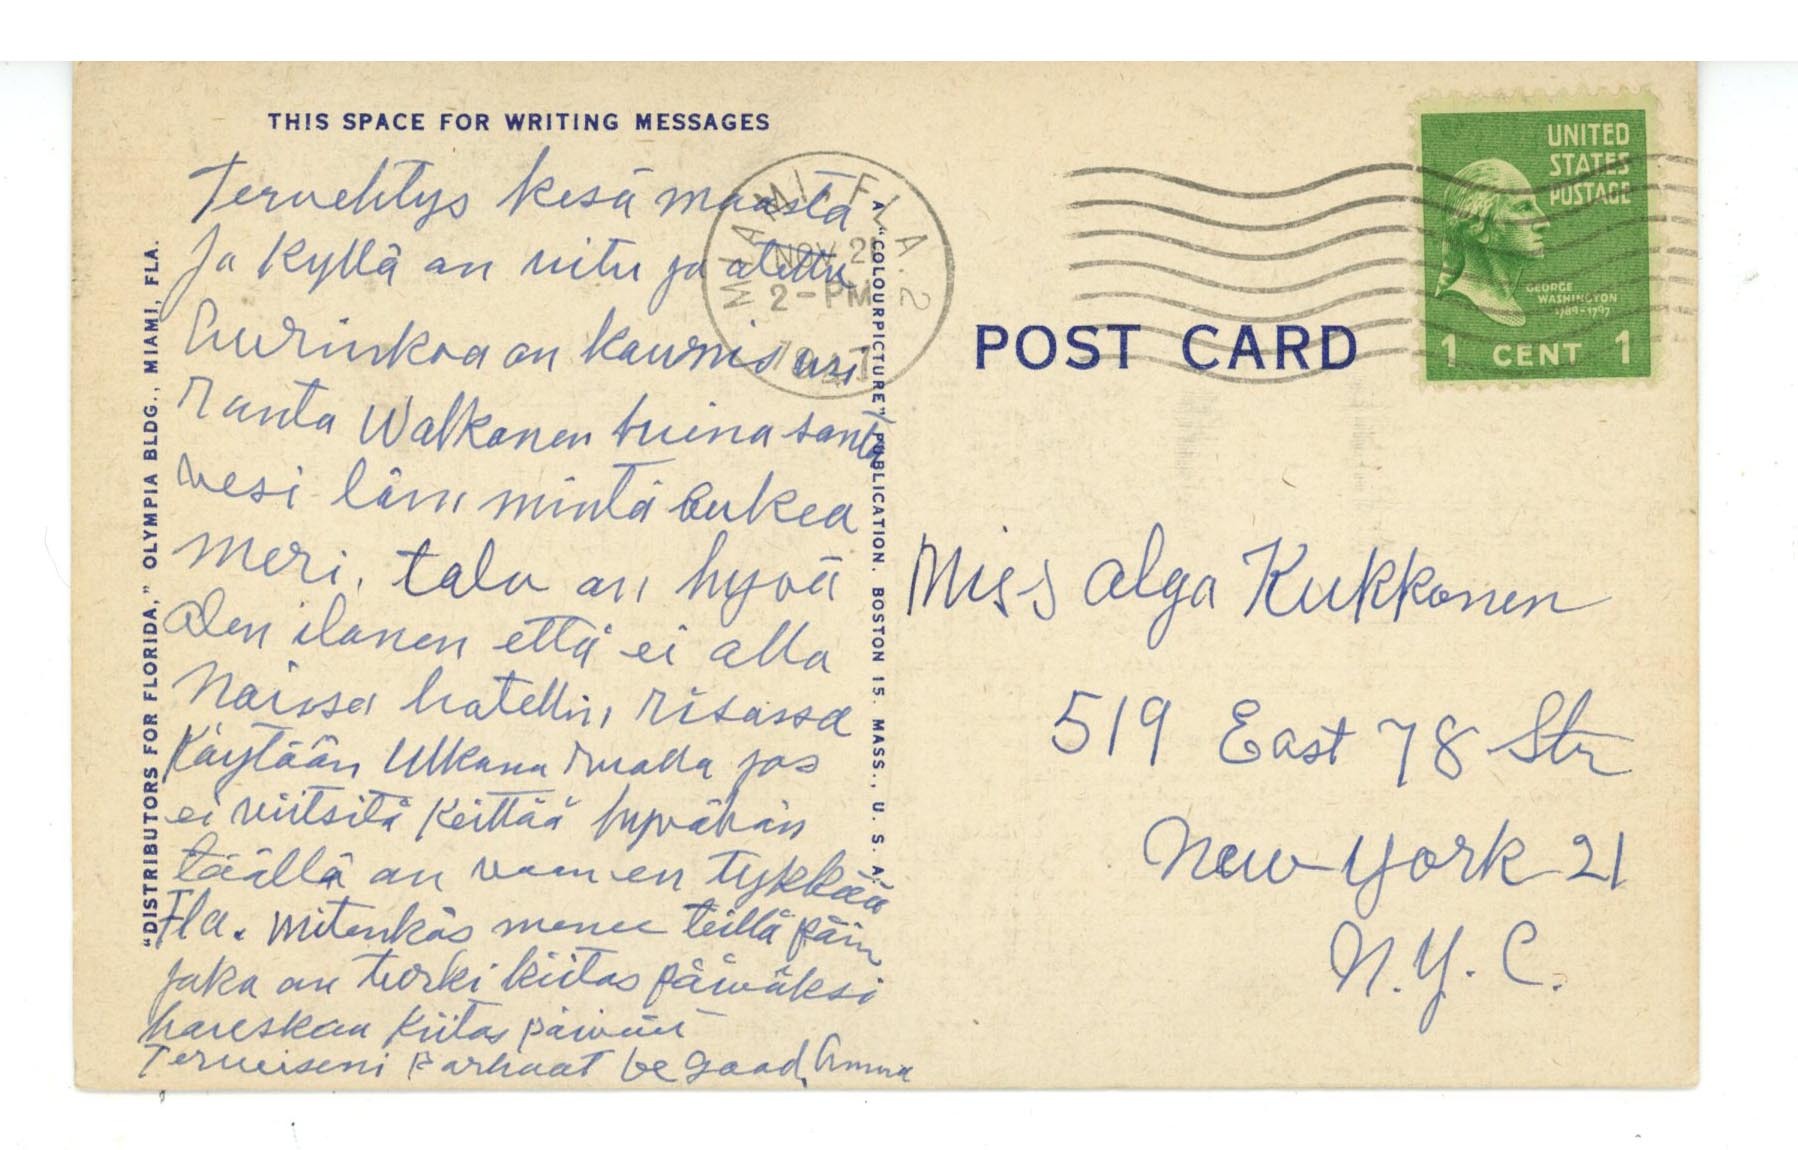 THIS SPACE FOR WRITING MESSAGES
Tervehtys kesä maasta
Ja Kyllä on
Aurinkoa on kaunis usi
ranta Walkonen hiena santa
vesi läm mintä aukea
meri, talo on hyvä
Olen ilonen että ei olla
Noissa hotellin,
Käytään Ulkona ruolla jos
ei viitsitä Keittää hyvähän
täällä on vaan en tykkää
Fla. Mitenkäs menee teillä päin
joka on turki kiitos päiväksi
hauskaa Kiitos päivää
Terveiseni Parhaat be good, Anna
"DISTRIBUTORS FOR FLORIDA," OLYMPIA BLDG., MIAMI, FLA.
A "COLOURPICTURE" PUBLICATION. BOSTON 15. MASS., U. S. A.
MIAMI, FLA. 2
NOV 2
2-PM
POST CARD
UNITED
STATES
POSTAGE
GEORGE
WASHINGTON
1789-1797
1 CENT 1
Miss Olga Kukkonen
519 East 78 Str
New York 21
N.Y.C.